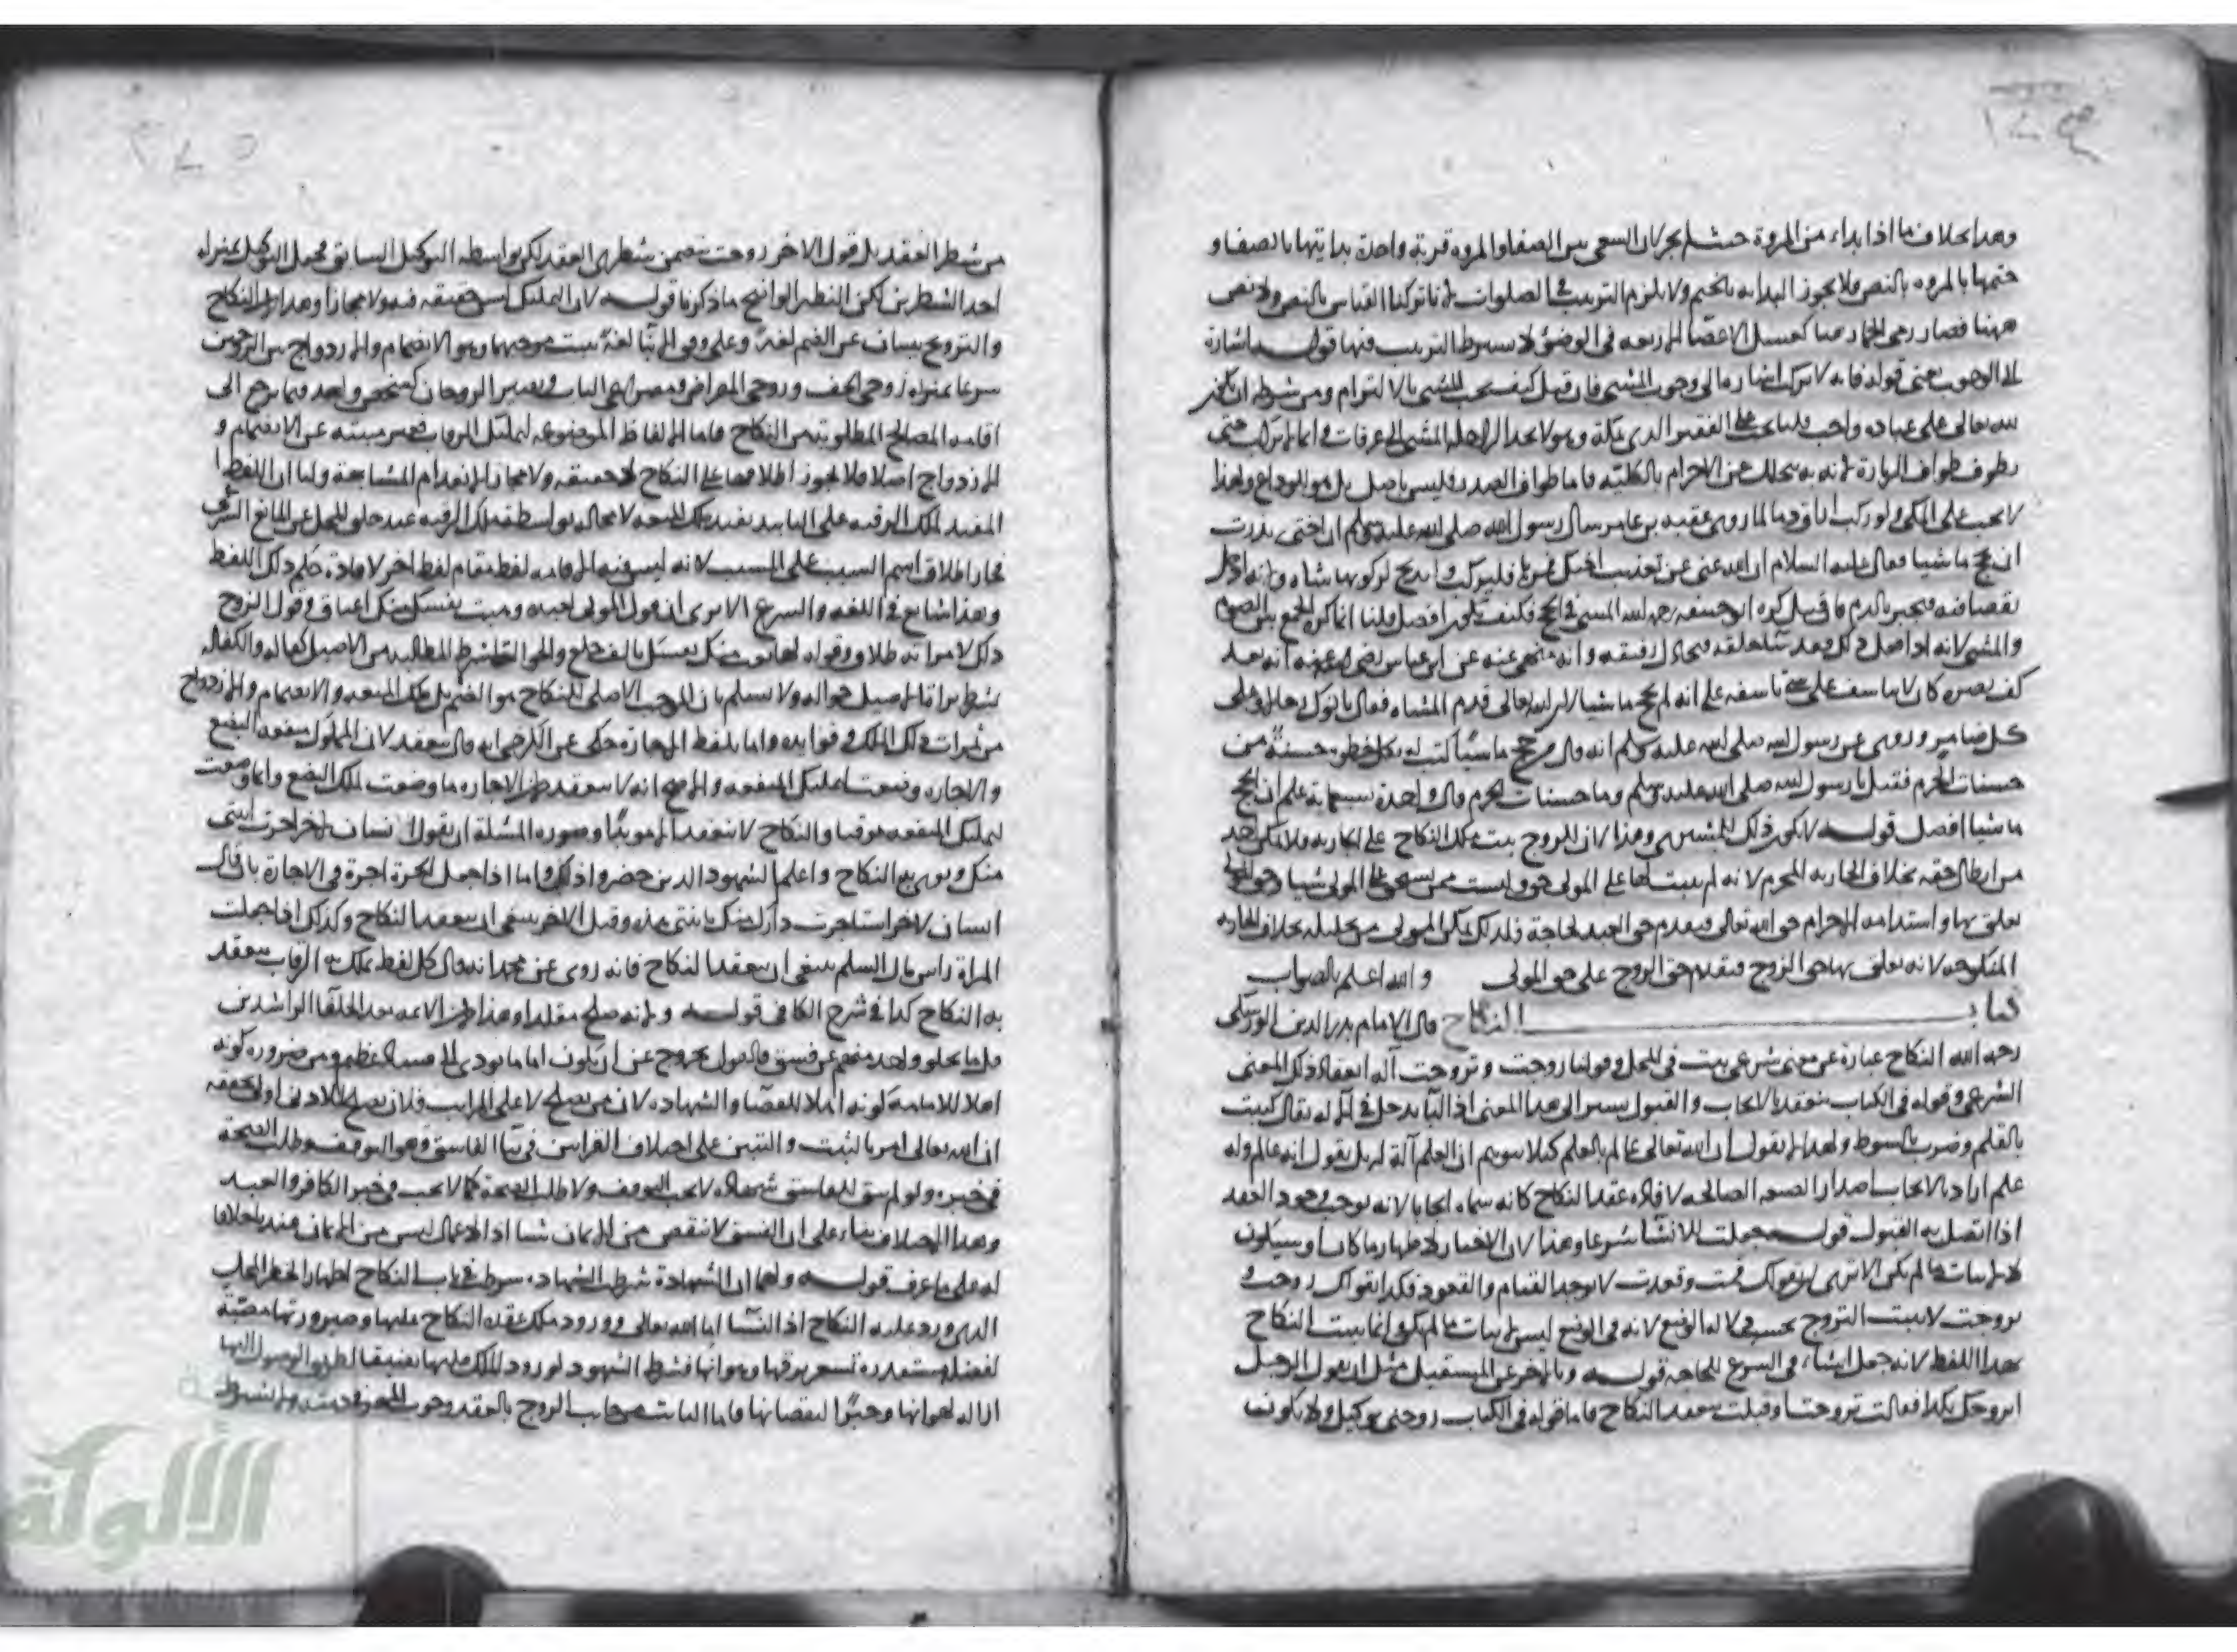 وهذا بخلاف ما اذا بداء من المروة حيث لم يجز لان السعي بين الصفا والمروه قربة واحدة بدايتها بالصفا و
ختمها بالمروه بالنص فلا يجوز البدايه بالختم ولا يلزم الترتيب في الصلوات لانا تركنا القياس بالنص ولا نص
ههنا فصار رمي الجمار هنا كغسل الاعضا الاربعه في الوضوء لا يشترط الترتيب فيها قوله اشارة
الى الوجوب يعني قوله فانه لا يركب اشاره الى وجوب المشي فان قيل كيف يجب المشي بالالتزام ومن شرطه ان يكون
لله تعالى على عباده واجب قلنا يجب على الفقير الذي بمكة وهو لا يجد الراحله المشي الى عرفات وانما لا يركب حتى
يطوف طواف الزيارة لانه به يتحلل عن الاحرام بالكليه فاما طواف الصدر فليس باصل بل هو للوداع ولهذا
لا يجب على المكي ولو ركب اراق دما لما روي عقبه بن عامر سال رسول الله صلى الله عليه وسلم ان اختي نذرت
ان تحج ماشيا فقال عليه السلام ان الله غني عن تعذيب اختك فلتركب ولتذبح لركوبها شاه ولانه ادخل
نقصا فيه فيجبر بالدم فان قيل كره ابو حنيفه رحمه الله المشي في الحج فكيف يكون افضل قلنا انما كره الجمع بين الصوم
والمشي لانه اذا فعل ذلك وانه منهي عنه عن ابن عباس رضي الله عنه انه بعد
كف بصره كان لا يتاسف على شي تاسفه على انه لم يحج ماشيا لان الله تعالى قدم المشاه فقال ياتوك رجالا وعلى
كل ضامر وروي عن رسول الله صلى الله عليه وسلم انه قال من حج ماشيا كتب له بكل خطوه حسنة من
حسنات الحرم فقيل يا رسول الله صلى الله عليه وسلم وما حسنات الحرم قال واحدة بسبعماية علم ان الحج
ماشيا افضل قوله لا يكون ذلك للمشتري وهذا لان المزوج يثبت ملك النكاح على الجاريه فلا يملك احد
من ابطال حقه بخلاف الجاريه المحرم لانه لم يثبت لها على المولى حق وليست ممن يستحق على المولى شيا وحق المولى
تعلق بها واستدامه الاحرام حق الله تعالى فيقدم حق العبد لحاجة فلذلك تمكن المولى من تحليله بخلاف الجاريه
المنكوحه لانه تعلق بها حق الزوج فيقدم حق الزوج على حق المولى والله اعلم بالصواب
كتاب النكاح قال الامام بدر الدين الورسكي
رحمه الله النكاح عبارة عن معنى شرعي يثبت في المحل وقولنا زوجت وتزوجت آلة انعقاد ذلك المعنى
الشرعي وقوله في الكتاب ينعقد بالايجاب والقبول يشير الى هذا المعنى اذ البا يدخل في الاله يقال كتبت
بالقلم وضرب بالسوط ولهذا لا يقول ان الله تعالى عالم بالعلم كيلا يتوهم ان العلم آلة له بل يقول انه عالم وله
علم اراد بالايجاب اصدار الصيغه الصالحه لافاده عقد النكاح كانه سماه ايجابا لانه يوجب وجود العقد
اذا اتصل به القبول قوله جعلت للانشا شرعا وهذا لان الاخبار لاظهار ما كان او سيكون
لا لاثبات ما لم يكن الا ترى ان بقولك قمت وقعدت لا يوجد القيام والقعود فكذا بقولك زوجت و
تزوجت لا يثبت التزوج بحسب الوضع لانه في الوضع ليس لاثبات ما لم يكن وانما يثبت النكاح
بهذا اللفظ لانه جعل انشاء في الشرع للحاجه قوله وبالاخر عن المستقبل مثل ان يقول الرجل
اتزوجك بكذا فقالت تزوجت او قبلت ينعقد النكاح فاما قوله في الكتاب زوجني توكيل ولا يكون
من شطر العقد بل قول الاخر زوجت يتضمن شطري العقد لكن بواسطه التوكيل السابق فجعل التوكيل بمنزله
احد الشطرين لكن النظير الواضح ما ذكرنا قوله لان التمليك ليس حقيقه فيه ولا مجازا وهذا لان النكاح
والتزويج ينبيان عن الضم لغة وعلى وفق الانبا لغة يثبت موجبها وهو الانضمام والازدواج بين الزوجين
شرعا بمنزله زوجي الخف وزوجي المقراض ويصير الزوجان كشخص واحد فيما يرجع الى
اقامه المصالح المطلوبة من النكاح فاما الالفاظ الموضوعه لتمليك الرقاب فغير مبنيه عن الانضمام و
الازدواج اصلا فلا يجوز اطلاقها على النكاح لا حقيقه ولا مجازا لانعدام المشابهة ولنا ان اللفظ
المفيد لملك الرقبه على التابيد يفيد ملك المتعه لا محاله بواسطه ملك الرقبه عند خلو المحل عن المانع الشرعي
فجاز اطلاق اسم السبب على المسبب لانه ليس فيه الا اقامه لفظ مقام لفظ اخر لافادة حكم ذلك اللفظ
وهذا شايع في اللغه والشرع الا ترى ان قول المولى لعبده وهبت نفسك منك اعتاق وقول الزوج
ذلك لامراته طلاق وقوله لها بعت منك نفسك بالف خلع والحواله بشرط المطالبه من الاصيل كفاله والكفاله
بشرط براة الاصيل حواله ولا نسلم بان الموجب الاصلي للنكاح هو الضم بل ملك المتعه والانضمام والازدواج
من ثمرات ذلك الملك وفوايده واما بلفظ الاجارة حكى عن الكرخي انه قال ينعقد لان المملوك منفعه البضع
والاجاره وضعت لتمليك المنفعه والاصح انه لا ينعقد لان الاجاره ما وضعت لملك البضع وانما وضعت
لتمليك المنفعه موقتا والنكاح لا ينعقد الا مويدا وصوره المسئلة ان يقول انسان لاخر اجرت ابنتي
منك ونوى به النكاح واعلما الشهود الذين حضروا ذلك واما اذا جعل الحرة اجرة في الاجارة بان قال
انسان لاخر استاجرت دارك منك بابنتي هذه وقبل الاخر ينبغي ان ينعقد النكاح وكذلك اذا جعلت
المراة راس مال السلم ينبغي ان ينعقد النكاح فانه روى عن محمد انه قال كل لفظ يملك به الرقاب ينعقد
به النكاح كذا في شرح الكافي قوله ولانه صلح مقلدا وهذا لان الائمه بعد الخلفا الراشدين
قلما يخلو واحد منهم عن فسق فالقول بخروجه عن ان يكون اماما يودي الى فساد عظيم ومن ضرورة كونه
اهلا للامامة كونه اهلا للقضا والشهاده لان من يصلح لاعلى المراتب فلان يصلح للادنى اولى يحققه
ان الله تعالى امر بالتثبت والتبين على اختلاف القرايتين في نبا الفاسق وهو التوقف وطلب الصحة
في خبره ولو لم يبق للفاسق شهادة لا يجب التوقف ولا طلب الصحة كما لا يجب في خبر الكافر والعبد
وهذا الاختلاف بناء على ان الفسق لا ينقص من الايمان شيا اذ الاعمال ليس من الايمان عندنا خلافا
له على ما عرف قوله ولهما ان الشهادة شرط الشهاده شرط في باب النكاح لاظهار الخطر المحل
الذي ورد عليه النكاح اذ النسا اما الله تعالى وورود ملك عقد النكاح عليها وصيرورتها
الشهود لورود الملك عليها
ازاله لهوانها وجبرا لنقصانها فاما الثابت بجانب الزوج بالعقد وجوب المهر